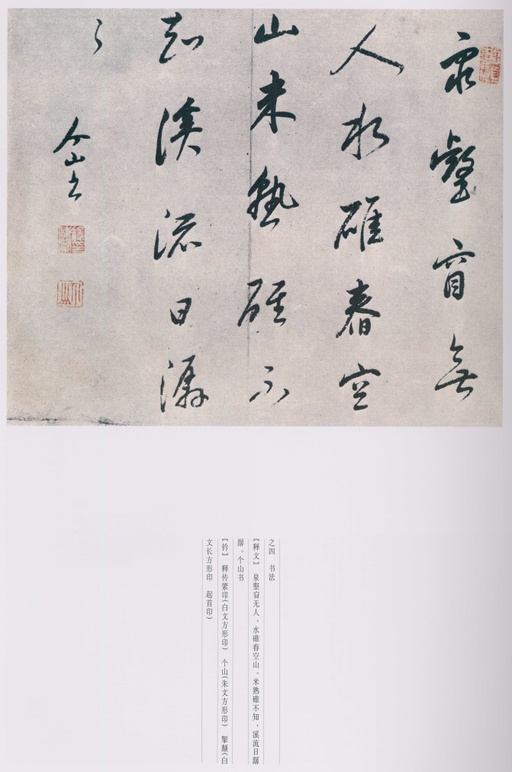 泉壑窅無
人水碓舂空
山米熟碓不
知溪流日潺
々
个山書
之四 书法
【释文】 泉壑窅无人，水碓舂空山。米熟碓不知，溪流日潺
潺。个山书
【钤】 释传綮印(白文方形印) 个山(朱文方形印) 掣颠(白
文长方形印 起首印)